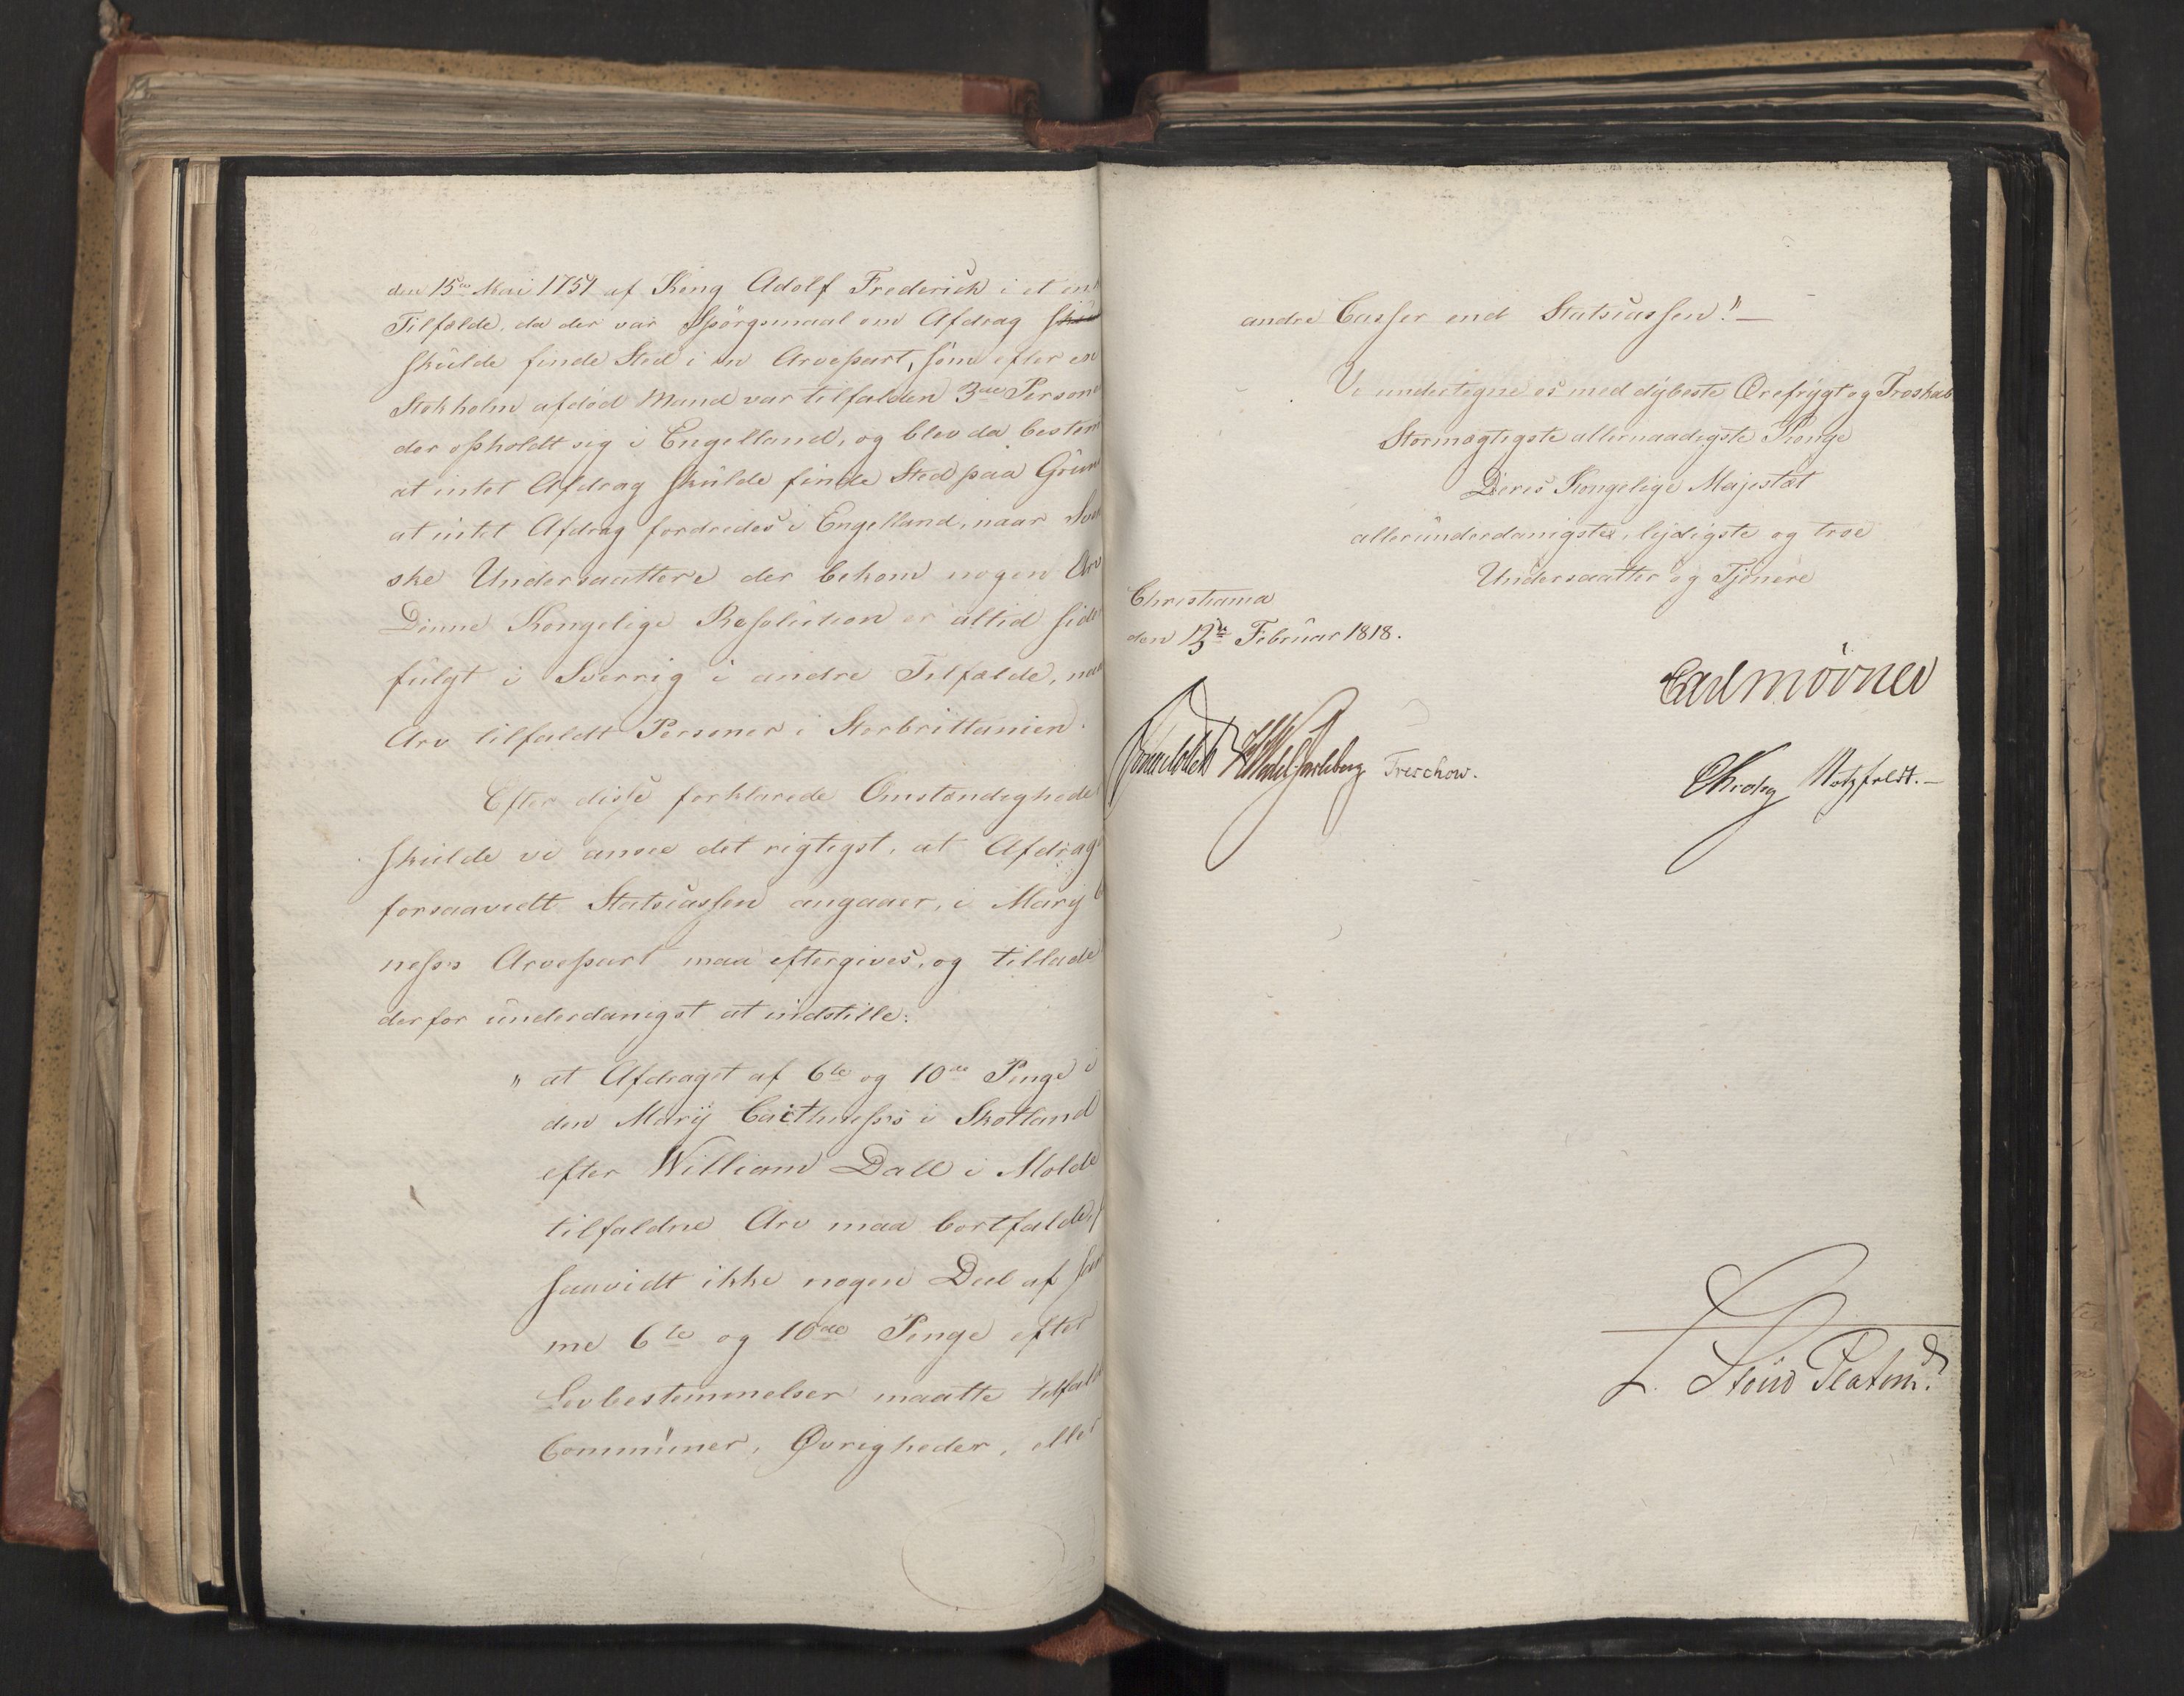 den 15de Mai 1751 af Kong Adolf Frederich i et
Tilfælde, da der var Spörgsmaal om Afdrag
skulde finde Sted i en Arvepart, som efter en
Stokholm afdöd Mand var tilfalden 3de Person
der opholdt sig i Engelland, og blev da bestem
at intet Afdrag skulde finde Sted paa Grun
at intet Afdrag fordredes i Engelland, naar Sven
ske Undersaattere der bekom nogen Arv
Denne Kongelige Resolution er altid sid
fulgt i Sverrig i andre Tilfælde, naa
Arv tilfaldt Personer i Storbrittanien.
Efter disse forklarede Omstændighede
skulde vi ansee det rigtigst, at Afdrag
forsaavidt Statscassen angaaer, i Mary
ness's Arvepart maa eftergives, og tillade
derfor underdanigst at indstille:
" at Afdraget af 6te og 10de Penge i
den Mary Caithness's i Skotland
efter William Dall i Molde
tilfaldne Arv maa bortfalde, f
saavidt ikke nogen Deel af sam
me 6te og 10de Penge efter
Lovbestemmelser maatte tilfald
Communer, Øvrigheder, eller
andre Casser end Statscassen!" —
Vi undertegne os med dybeste Ærefrygt og Troskab
Stormægtigste allernaadigste Konge
Deres Kongelige Majestæt
allerunderdanigste, lydigste og troe
Undersaatter og Tjenere
Christiania
den 13de Februar 1818.
Carl Mörner
Sommerhielm HWedel Jarlsberg Treschow.
CKrohg Motzfeldt. —
L. Stoud Platou.